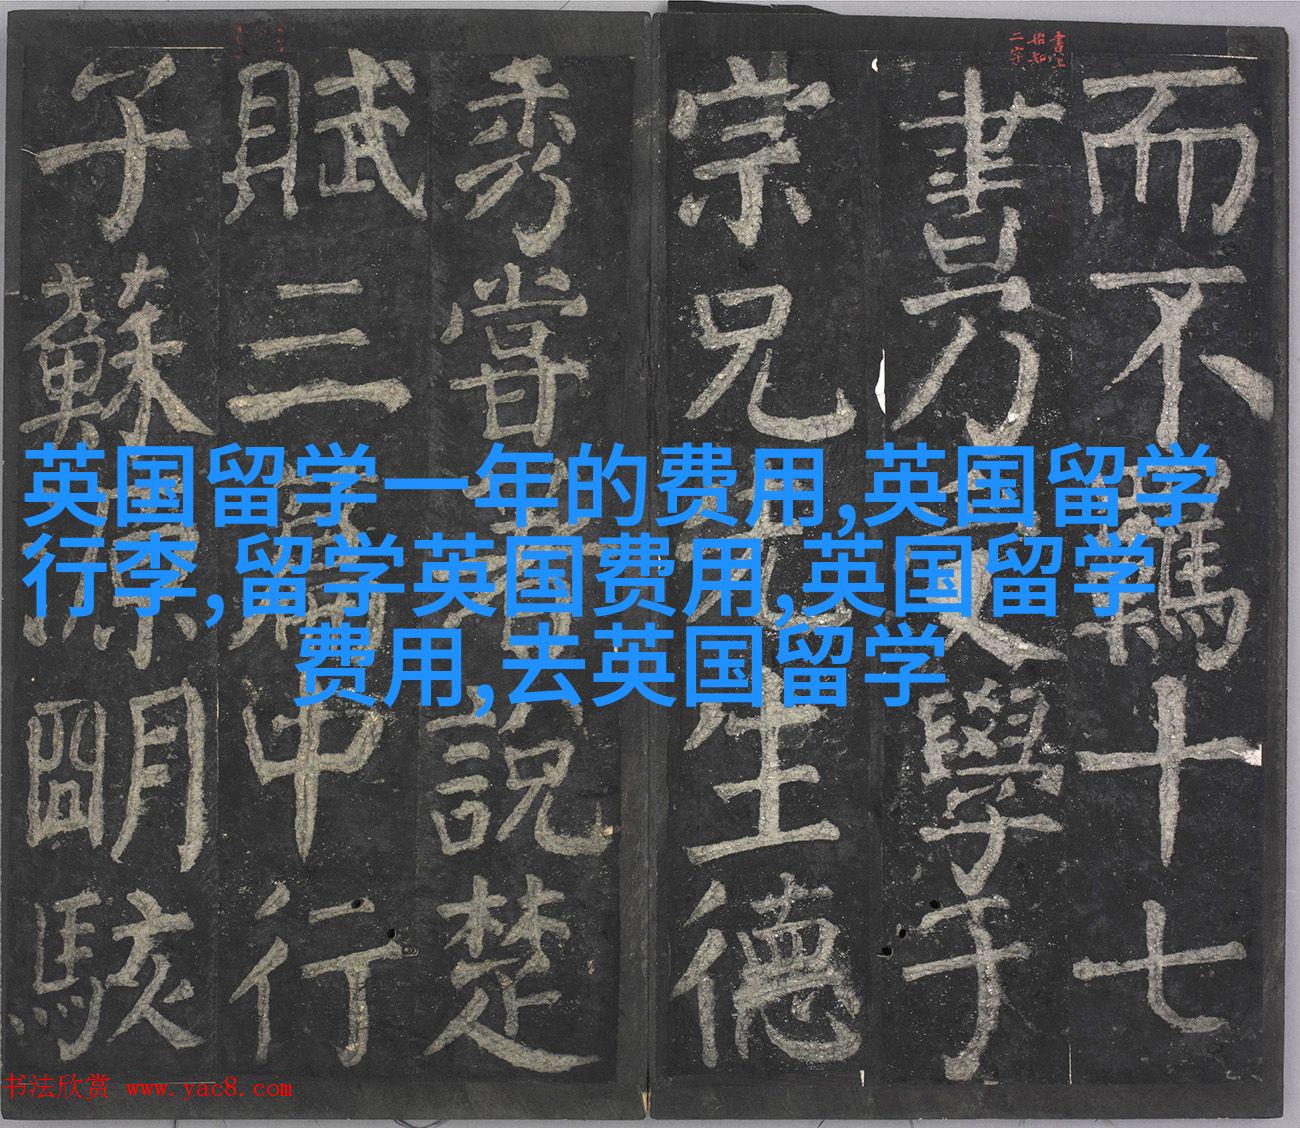 書上
始知
二字
而不羈十七
書乃受學于
宗兄先生德
秀嘗著說楚
賦三篇中行
子蘇源明駭
英国留学一年的费用,英国留学
行李,留学英国费用,英国留学
费用,去英国留学
书法欣赏 www.yac8.com